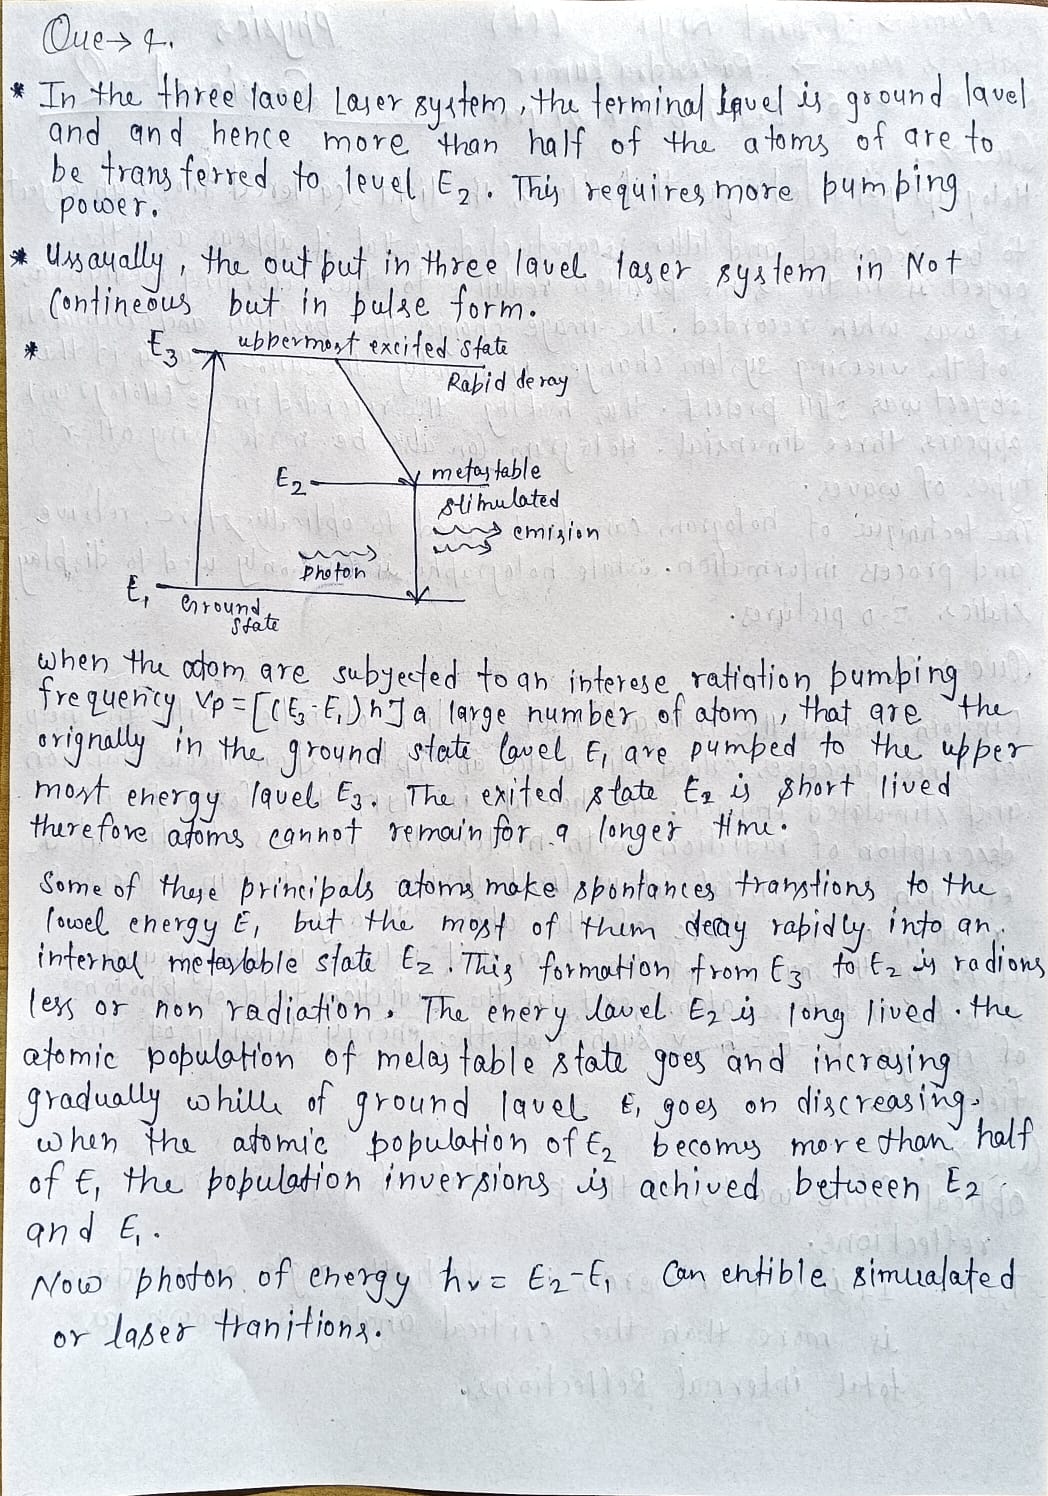 Que→ 4.
* In the three lavel Laser system, the terminal lavel is ground lavel
and and hence more than half of the atoms of are to
be transferred to level E2. This requires more pumping
power.
* Ussayally, the output in three lavel laser system in Not
Contineous but in pulse form.
*
E3 uppermost excited state
Rapid deray
E2 metastable
stimulated
emision
photon
E1 Ground
state
when the atom are subyected to an interese ratiation pumping
frequency Vp = [(E3-E1)h] a large number of atom, that are the
orignally in the ground state lavel E1 are pumped to the upper
most energy lavel E3. The exited state E2 is short lived
therefore atoms cannot remain for a longer time.
Some of these principals atoms make spontances transtions to the
lowel energy E1 but the most of them decay rapidly into an
internal metastable state E2. This formation from E3 to E2 is radions
less or non radiation. The enery lavel E2 is long lived. the
atomic population of melastable state goes and incrasing
gradually whille of ground lavel E1 goes on discreasing.
when the atomic population of E2 becomes more than half
of E1 the population inversions is achived between E2
and E1.
Now photon of energy hv = E2-E1 Can entible simualated
or laser tranitions.